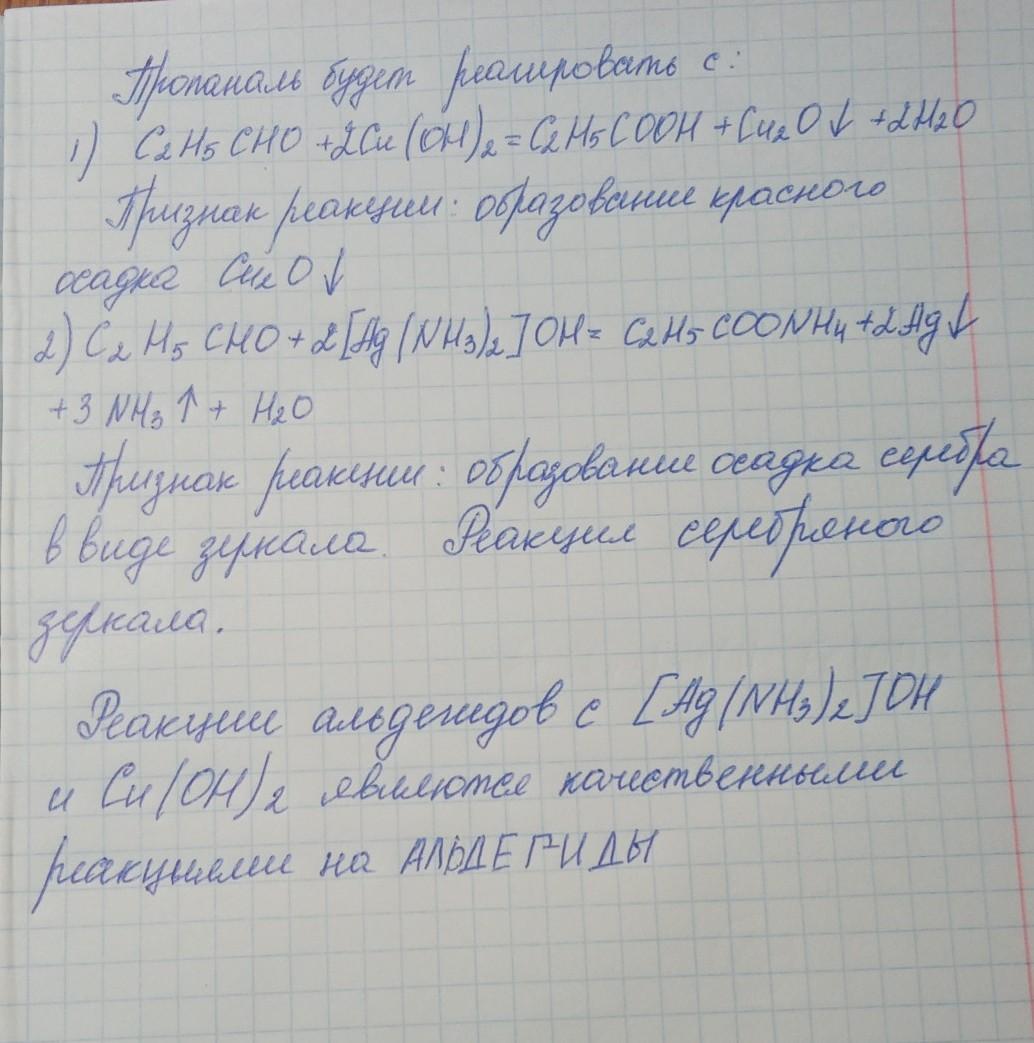 Пропаналь будет реагировать с:
1) C₂H₅CHO +2Cu(OH)₂=C₂H₅COOH +Cu₂O↓ +2H₂O
Признак реакции: образование красного
осадка Cu₂O↓
2) C₂H₅CHO+2[Ag(NH₃)₂]OH= C₂H₅COONH₄+2Ag↓
+3NH₃↑ + H₂O
Признак реакции: образование осадка серебра
в виде зеркала. Реакция серебряного
зеркала.
Реакции альдегидов с [Ag(NH₃)₂]OH
и Cu(OH)₂ являются качественными
реакциями на АЛЬДЕГИДЫ